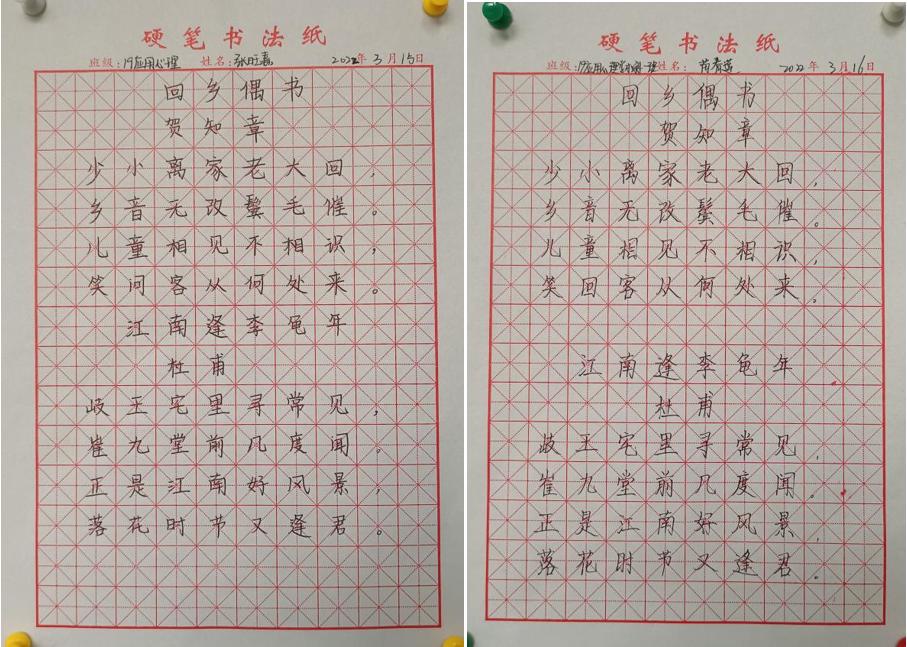 硬笔书法纸
班级:19应用心理 姓名: 2022年3月15日
回乡偶书
贺知章
少小离家老大回,
乡音无改鬓毛催。
儿童相见不相识,
笑问客从何处来。
江南逢李龟年
杜甫
岐王宅里寻常见,
崔九堂前凡度闻。
正是江南好风景,
落花时节又逢君。
硬笔书法纸
班级:19应用心理 姓名: 2022年3月16日
回乡偶书
贺知章
少小离家老大回,
乡音无改鬓毛催。
儿童相见不相识,
笑回客从何处来。
江南逢李龟年
杜甫
岐王宅里寻常见,
崔九堂前凡度闻。
正是江南好风景,
落花时节又逢君。